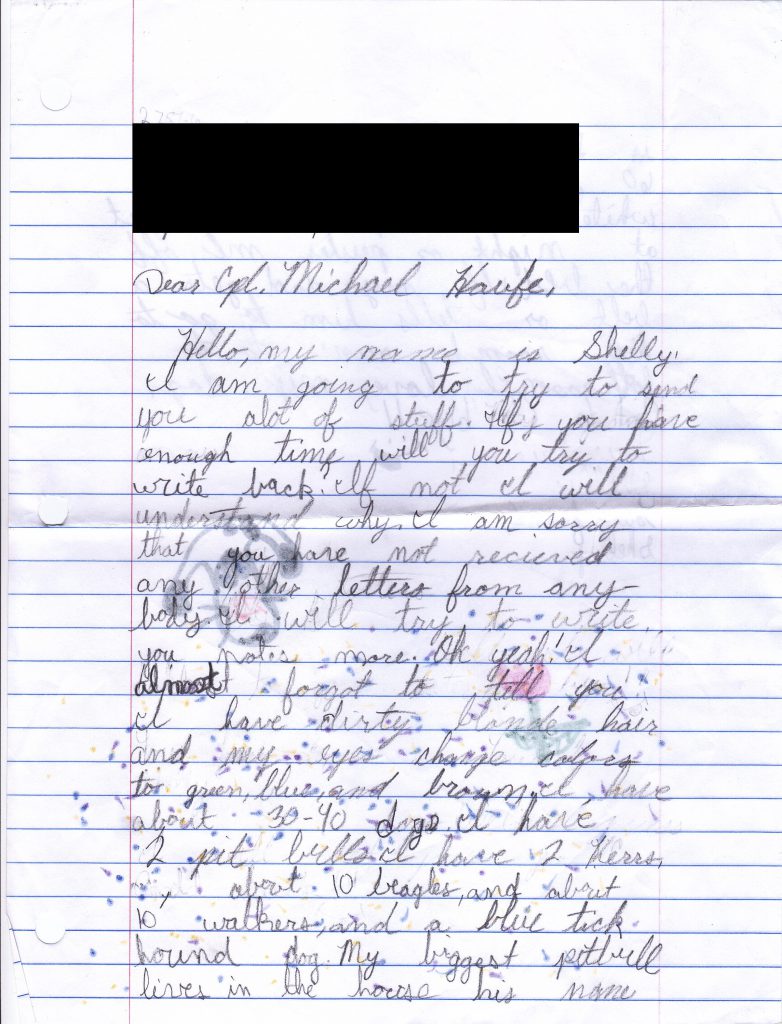 Dear Cpl. Michael Haufe,
Hello, my name is Shelly.
I am going to try to send
you alot of stuff. If you have
enough time will you try to
write back. If not I will
understand why. I am sorry
that you have not recieved
any other letters from any-
body. I will try to write
you notes more. Oh yeah! I
almost forgot to tell you
I have dirty blonde hair
and my eyes change colors
to green, blue, and brown. I have
about 30-40 dogs. I have
2 pit bulls. I have 2 Kerrs,
about 10 beagles, and about
10 walkers, and a blue tick
hound dog. My biggest pitbull
lives in the house his name